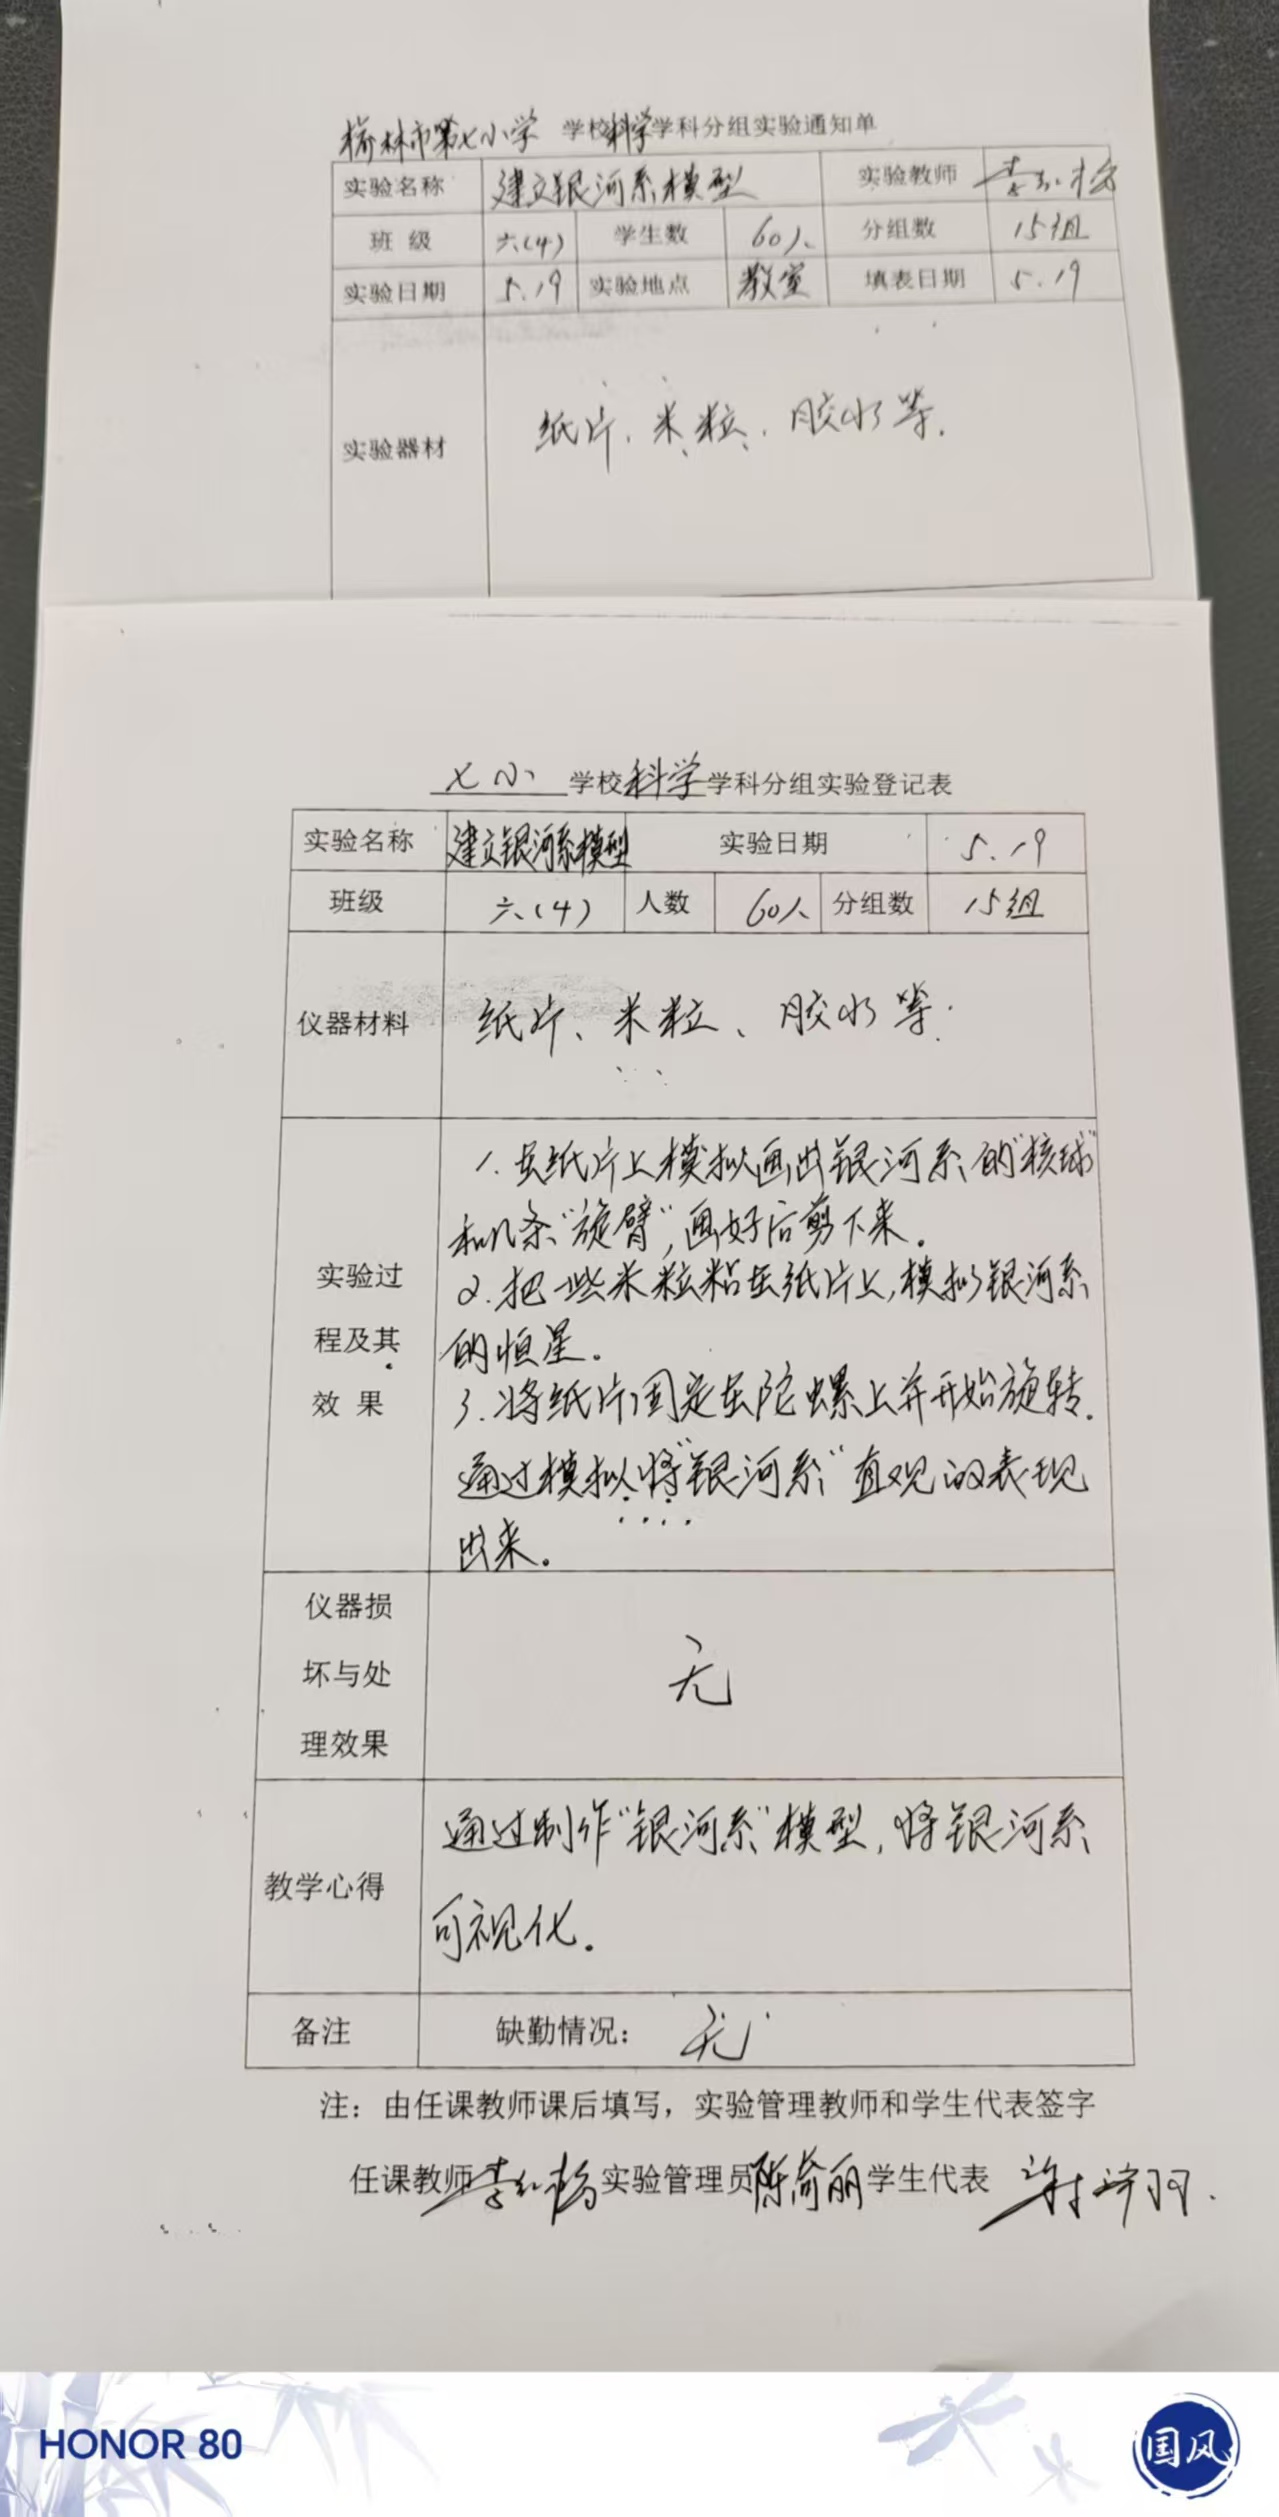 榆林市第七小学 学校科学学科分组实验通知单
实验名称 建立银河系模型 实验教师 李红杨
班级 六(4) 学生数 60人 分组数 15组
实验日期 5.19 实验地点 教室 填表日期 5.19
实验器材 纸片、米粒、胶水等.
七小 学校科学学科分组实验登记表
实验名称 建立银河系模型 实验日期 5.19
班级 六(4) 人数 60人 分组数 15组
仪器材料 纸片、米粒、胶水等.
1.在纸片上模拟画出银河系的"核球"
和几条"旋臂",画好后剪下来。
实验过
2.把一些米粒粘在纸片上,模拟银河系
程及其
的恒星。
效果
3.将纸片固定在陀螺上并开始旋转.
通过模拟将"银河系"直观的表现
出来。
仪器损
坏与处 无
理效果
通过制作"银河系"模型,将银河系
教学心得
可视化.
备注 缺勤情况: 无
注:由任课教师课后填写,实验管理教师和学生代表签字
任课教师 李红杨 实验管理员 陈 丽 学生代表
HONOR 80
国风